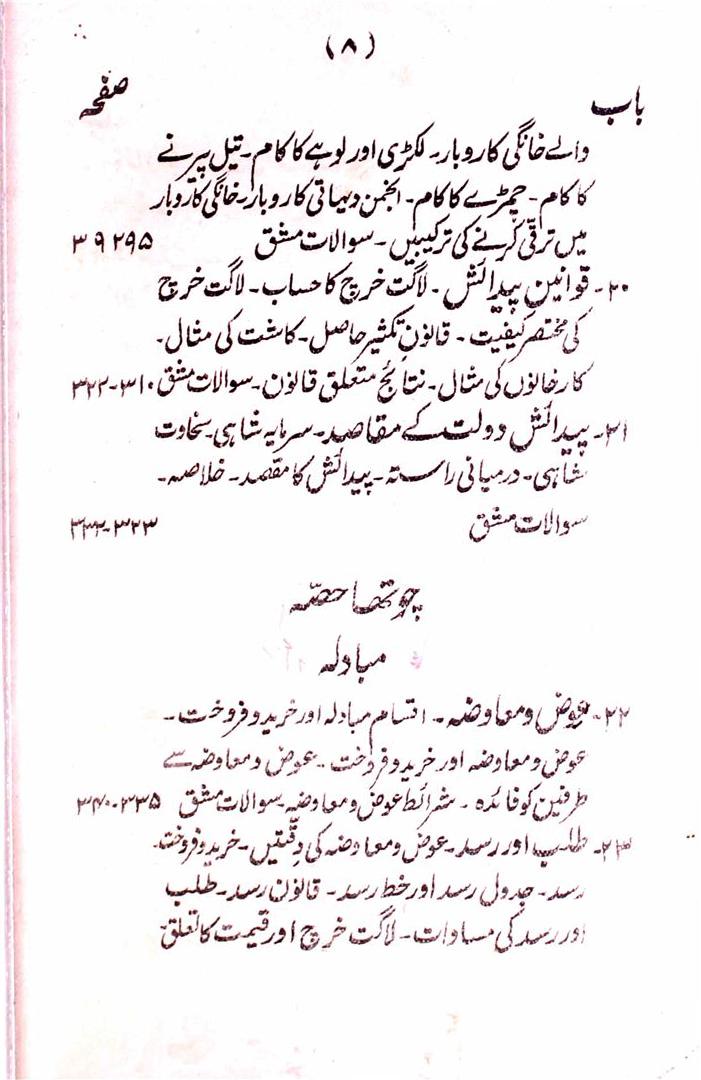 (۸)
باب
صفحہ
والے خانگی کاروبار۔ لکڑی اور لوہے کا کام۔ تیل پیرنے
کا کام۔ چمڑے کا کام۔ انجمن دیہاتی کاروبار۔ خانگی کاروبار
میں ترقی کرنے کی ترکیبیں۔ سوالات مشق
۲۰۔ قوانین پیدائش۔ لاگت خرچ کا حساب۔ لاگت خرچ
کی مختصر کیفیت۔ قانون تکثیر حاصل۔ کاشت کی مثال۔
کارخانوں کی مثال۔ نتائج متعلق قانون۔ سوالات مشق ۳۱۰-۳۲۲
۲۱۔ پیدائش دولت کے مقاصد۔ سرمایہ شاہی۔ سخاوت
شاہی۔ درمیانی راستہ۔ پیدائش کا مقصد۔ خلاصہ۔
سوالات مشق
چوتھا حصّہ
مبادلہ
۲۲۔ عوض و معاوضہ۔ اقسام مبادلہ اور خرید و فروخت۔
عوض و معاوضہ اور خرید و فروخت۔ عوض و معاوضہ سے
طرفین کو فائدہ۔ شرائط عوض و معاوضہ۔ سوالات مشق ۳۳۵-۳۴۰
۲۳۔ طلب اور رسد۔ عوض و معاوضہ کی دقّتیں۔ خرید و فروخت۔
رسد۔ جدول رسد اور خط رسد۔ قانون رسد۔ طلب
اور رسد کی مساوات۔ لاگت خرچ اور قیمت کا تعلق۔